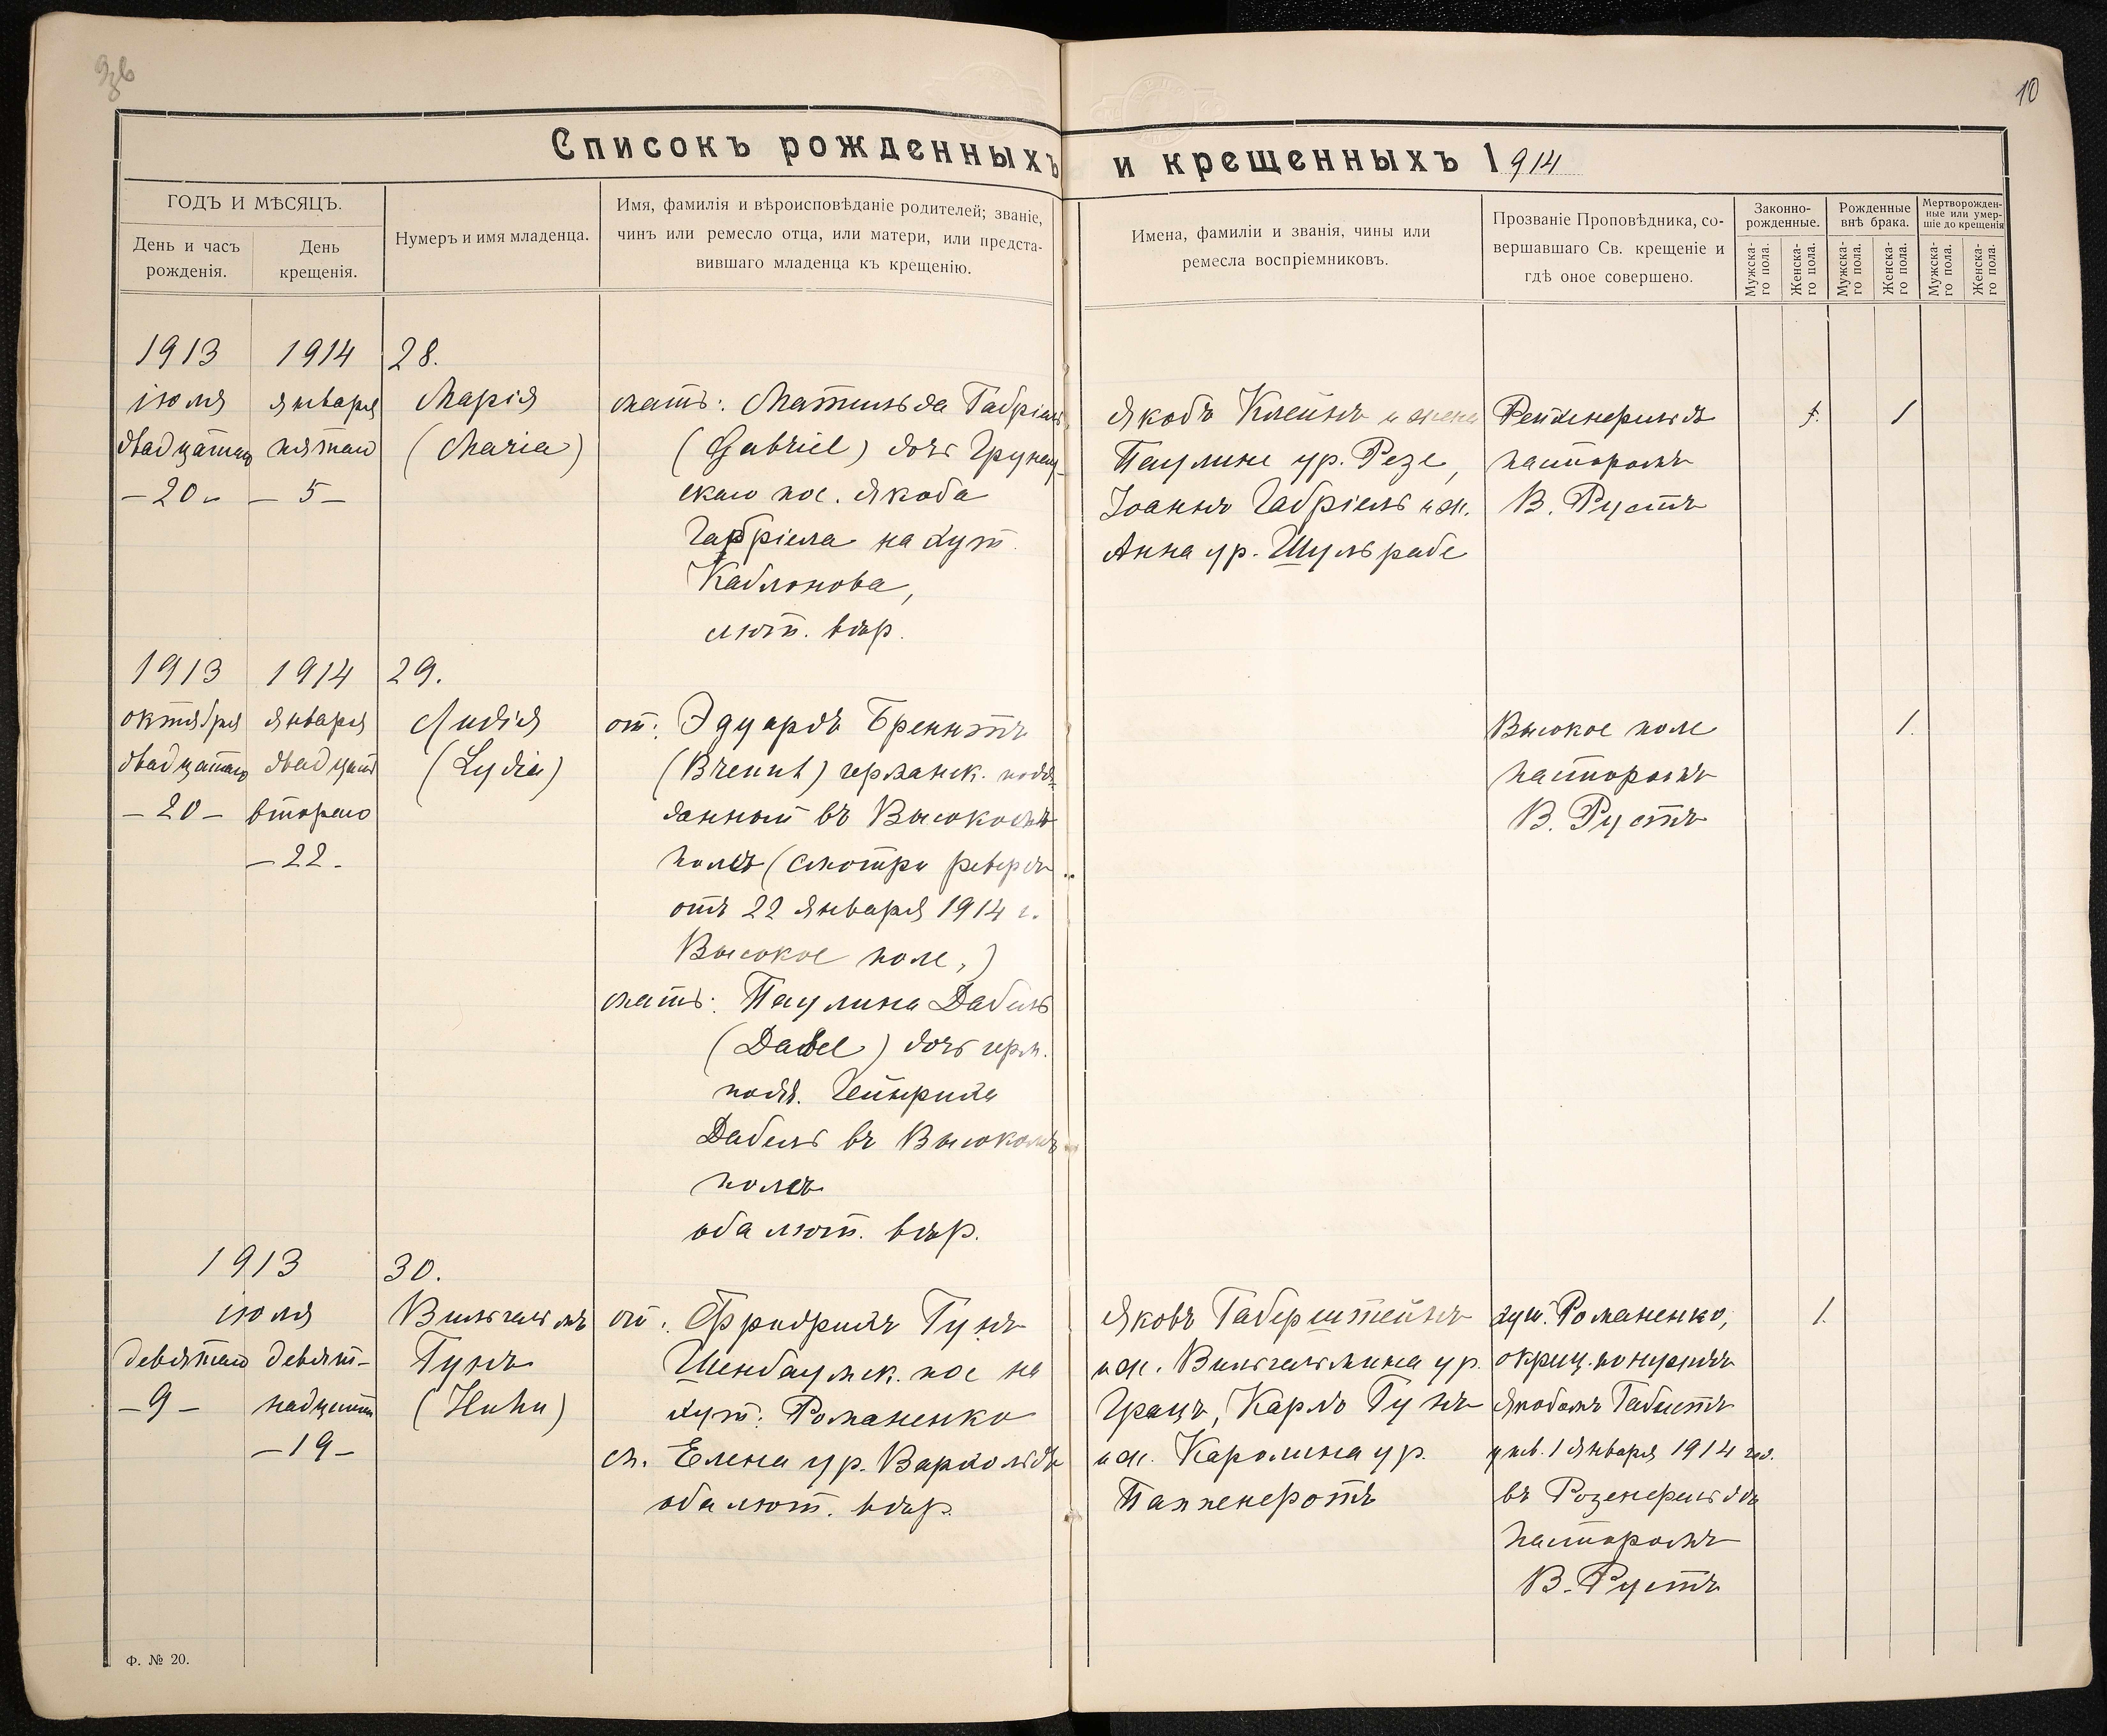 10
Списокъ рожденныхъ и крещенныхъ 1914
ГОДЪ И МѢСЯЦЪ.
День и часъ рожденія.
День крещенія.
Нумеръ и имя младенца.
Имя, фамилія и вѣроисповѣданіе родителей; званіе,
чинъ или ремесло отца, или матери, или предста-
вившаго младенца къ крещенію.
Имена, фамиліи и званія, чины или
ремесла воспріемниковъ.
Прозваніе Проповѣдника, со-
вершавшаго Св. крещеніе и
гдѣ оное совершено.
Законно-
рожденные.
Рожденные
внѣ брака.
Мертворожден-
ные или умер-
шіе до крещенія
Мужска-
го пола.
Женска-
го пола.
Мужска-
го пола.
Женска-
го пола.
Мужска-
го пола.
Женска-
го пола.
1913
іюля
двадцатаго
– 20 –
1914
января
пятаго
– 5 –
28.
Марія
(Maria)
мать: Матильда Габріель
(Gabriel) дочь Грунау-
скаго пос. Якоба
Габріеля на хут.
Каблокова,
лют. вѣр.
Якобъ Клейнъ и жена
Паулине ур. Резе,
Іоаннъ Габріель и ж.
Анна ур. Шульраде
Рейхенфельдъ
пасторомъ
В. Рустъ
1
1913
октября
двадцатаго
– 20 –
1914
января
двадцать
второго
– 22 –
29.
Лидія
(Lydia)
от: Эдуардъ Бреннтъ
(Brennt) германск. подд-
данный въ Высокомъ
полѣ (смотри реверсъ
отъ 22 января 1914 г.
Высокое поле.)
мать: Паулина Дабель
(Dabel) дочь герм.
подд. Гейнриха
Дабель въ Высокомъ
полѣ
оба лют. вѣр.
Высокое поле
пасторомъ
В. Рустъ
1.
1913
іюля
девятаго
– 9 –
девят-
надцатаго
– 19 –
30.
Вильгельмъ
Гунъ
(Huhn)
от: Фридрихъ Гунъ
Шенбаумск. пос на
хут: Романенко
м. Елена ур. Вархольдъ
оба лют. вѣр.
Яковъ Габерштейнъ
и ж. Вильгельмина ур.
Грацъ, Карлъ Гунъ
и ж. Каролина ур.
Панкенеротъ
хут. Романенко,
окрещ. по нуждѣ
Якобомъ
1 января 1914 год.
въ Розенфельдѣ
пасторомъ
В. Рустъ
1.
Ф. № 20.